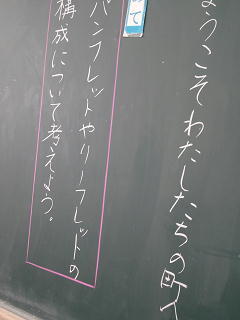 ようこそわたしたちの町へ
て
パンフレットやリーフレットの
構成について考えよう。